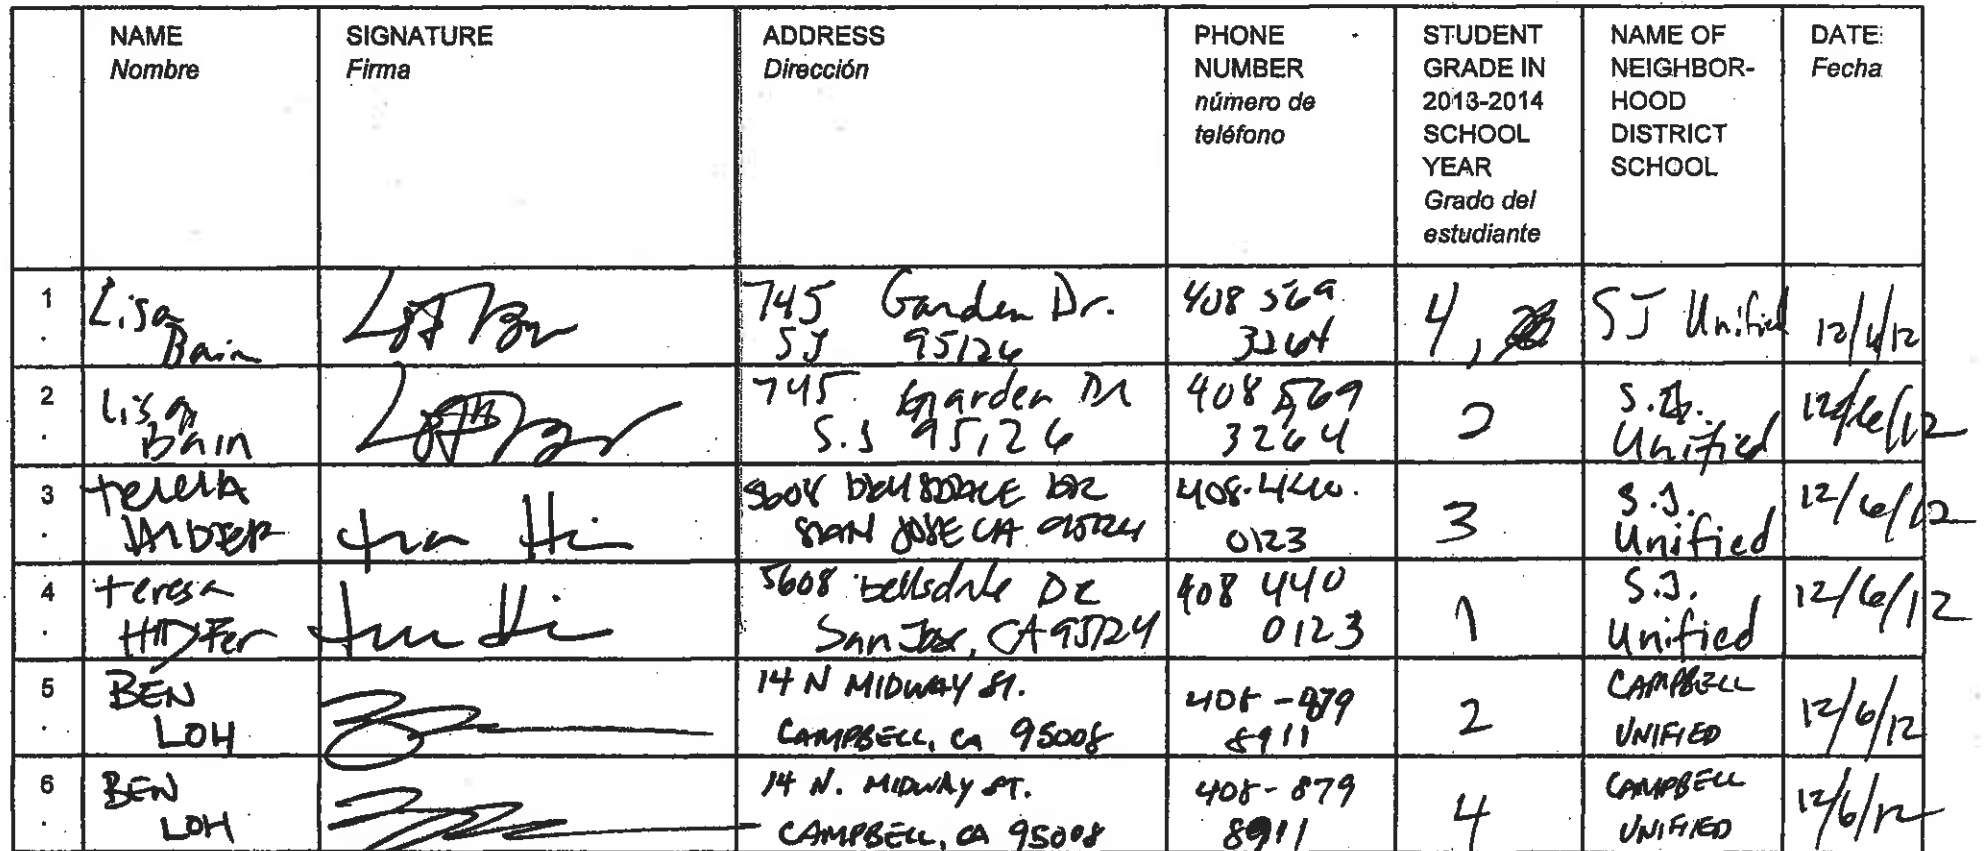 NAME
Nombre
SIGNATURE
Firma
ADDRESS
Dirección
PHONE
NUMBER
número de
teléfono
STUDENT
GRADE IN
2013-2014
SCHOOL
YEAR
Grado del
estudiante
NAME OF
NEIGHBOR-
HOOD
DISTRICT
SCHOOL
DATE:
Fecha
1
.
Lisa
Bain
745 Garden Dr.
SJ 95126
408 569
3264
4,
SJ Unified
12/6/12
2
.
Lisa
Bain
745 Garden Dr
S.J 95126
408 569
3264
2
S.J.
Unified
12/6/12
3
.
5608 DR
SAN JOSE CA 95124
408.440.
0123
3
S.J.
Unified
12/6/12
4
.
teresa
5608 Bellsdale Dr
San Jose, CA 95124
408 440
0123
1
S.J.
Unified
12/6/12
5
.
BEN
LOH
14 N MIDWAY ST.
CAMPBELL, CA 95008
408-879
8911
2
CAMPBELL
UNIFIED
12/6/12
6
.
BEN
LOH
14 N. MIDWAY ST.
CAMPBELL, CA 95008
408-879
8911
4
CAMPBELL
UNIFIED
12/6/12